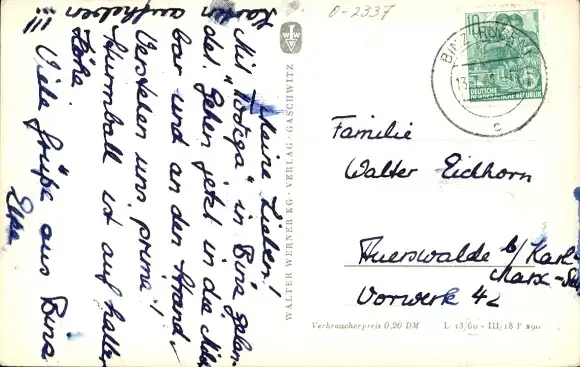 0-2337
Meine Lieben!
Mit "Wodiga" in Binz gelan-
det. Gehen jetzt in die Milch-
bar und an den Strand.
Verstehen uns prima!
Sturmball ist auf halber
Höhe.
!!! Viele Grüße aus Binz
Karin
aufhelsen
WALTER WERNER KG · VERLAG · GASCHWITZ
10
DEUTSCHE
DEMOKRATISCHE REPUBLIK
BINZ (RÜGEN)
c
Familie
Walter Eichhorn
Auerswalde b/ Karl-
Marx-
Vorwerk 42
Verbraucherpreis 0,20 DM
L 13/60 – III/18 F 290